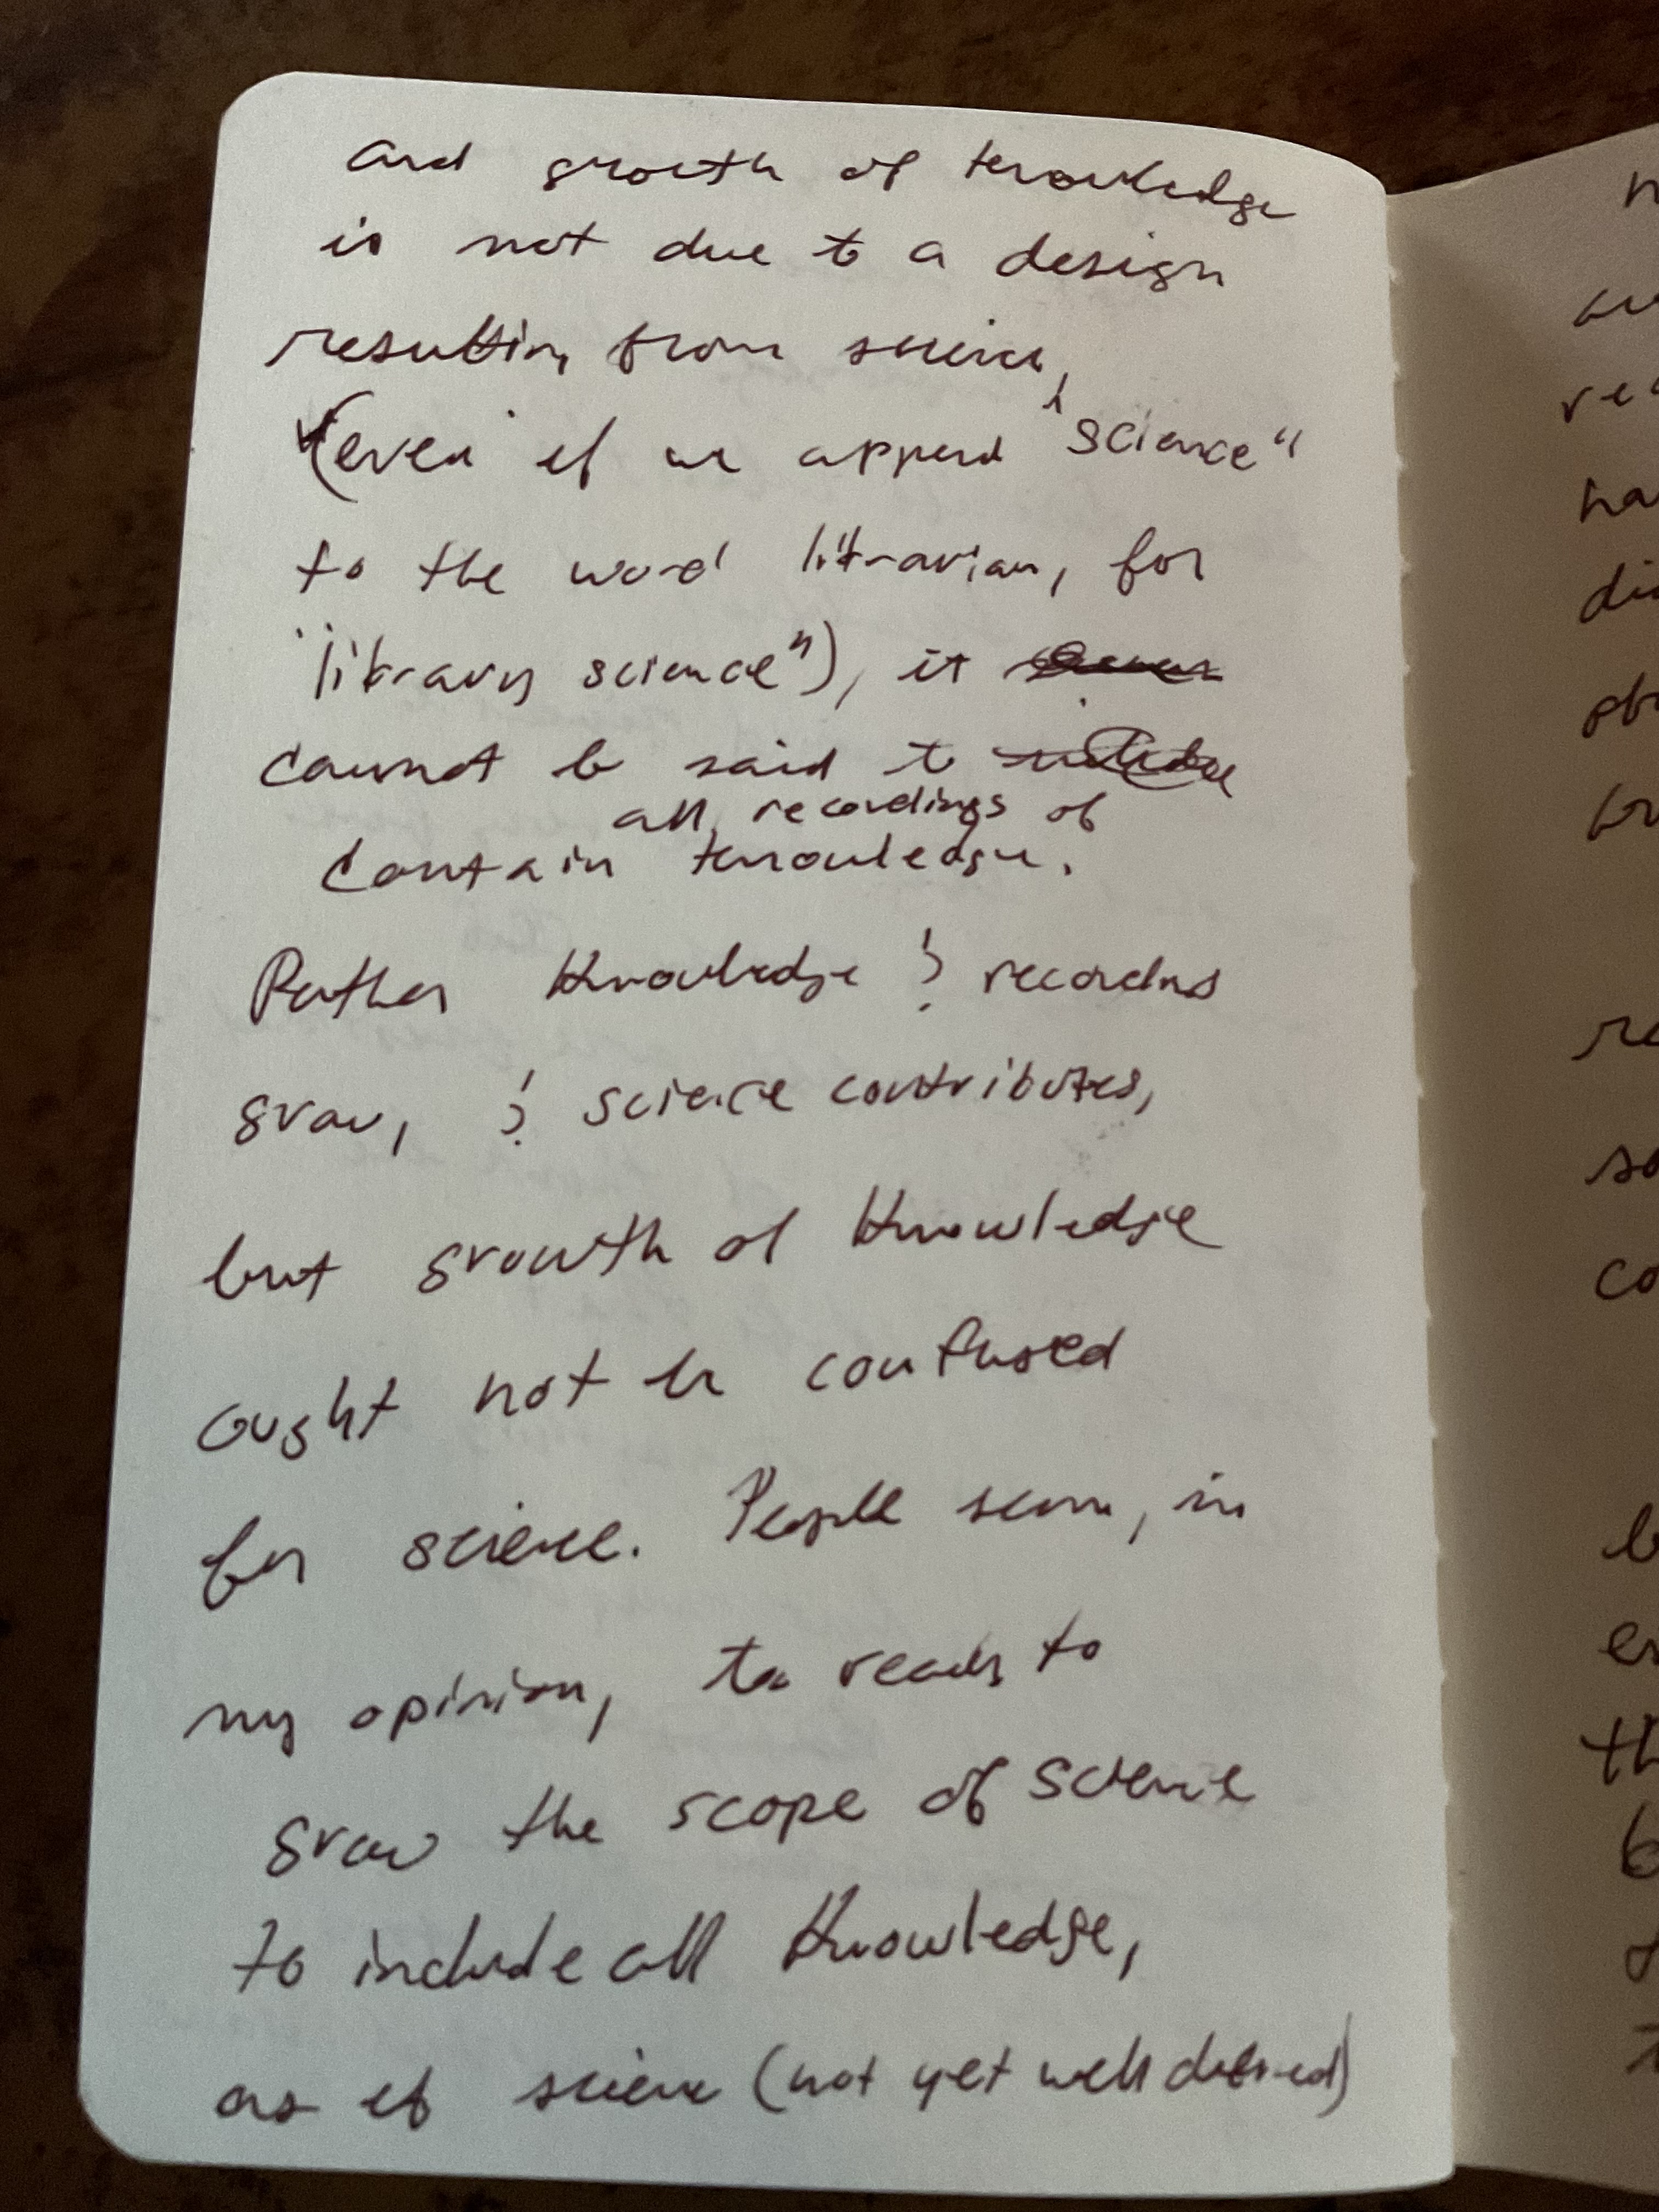 and growth of knowledge
is not due to a design
resulting from science,
(even if we append "science"
to the word librarian, for
"library science"), it
cannot be said to
all recordings of
contain knowledge.
Rather knowledge & records
grow, & science contributes,
but growth of knowledge
ought not be confused
for science. People seem, in
my opinion, to ready to
grow the scope of science
to include all knowledge,
as if science (not yet well defined)